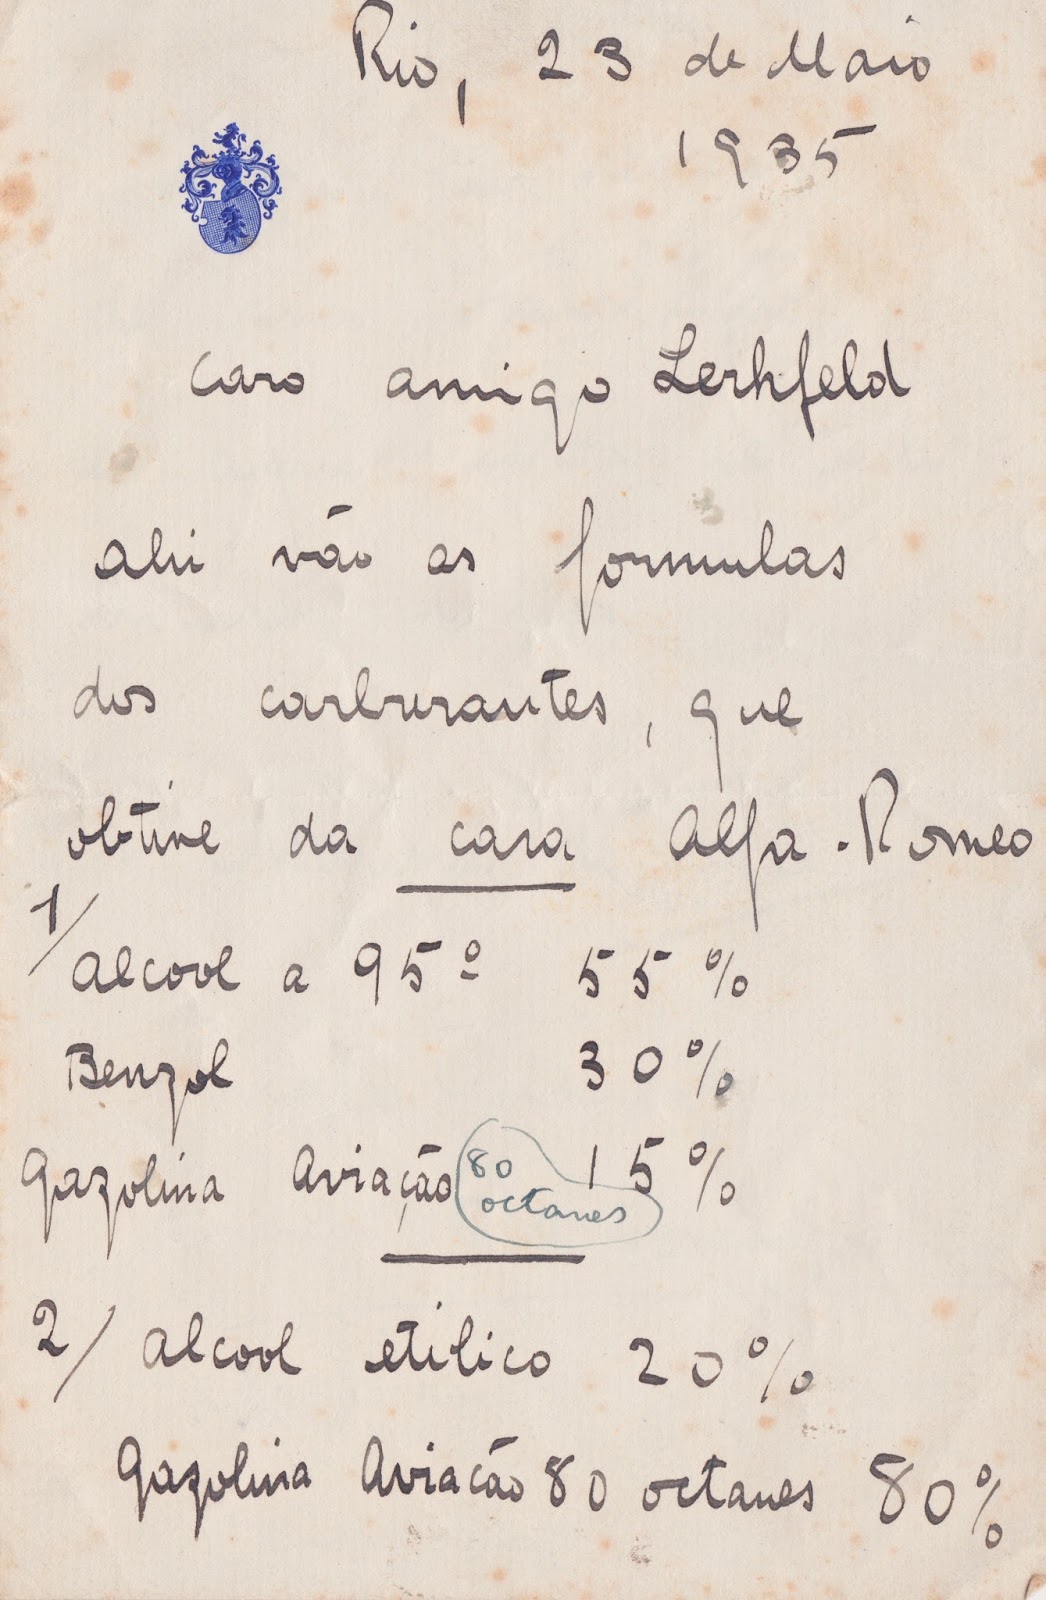 Rio, 23 de Maio
1935
Caro amigo Lerhfeld
ahi vão as formulas
dos carburantes, que
obtive da casa Alfa-Romeo
1/
Alcool a 95º 55%
Benzol 30%
Gazolina Aviação 80 octanes 15%
2/ Alcool etilico 20%
Gazolina Aviacão 80 octanes 80%